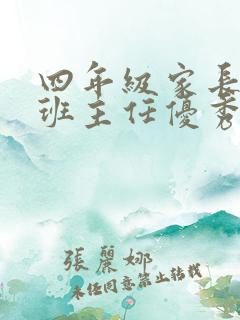 四年級家長
班主任優秀
張麗娜
未經同意禁止轉載